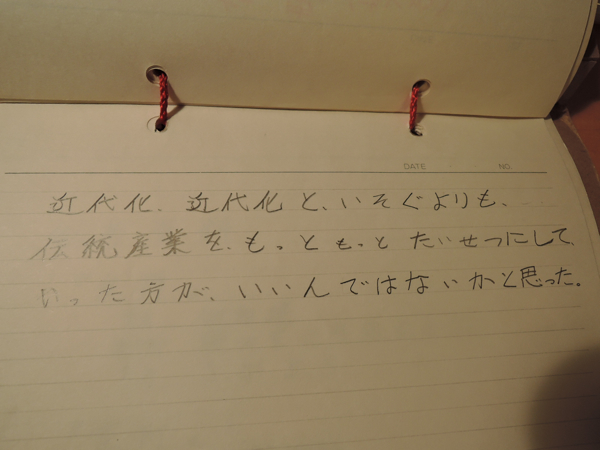 DATE NO.
近代化、近代化と、いそぐよりも、
伝統産業を、もっともっとたいせつにして、
いった方が、いいんではないかと思った。